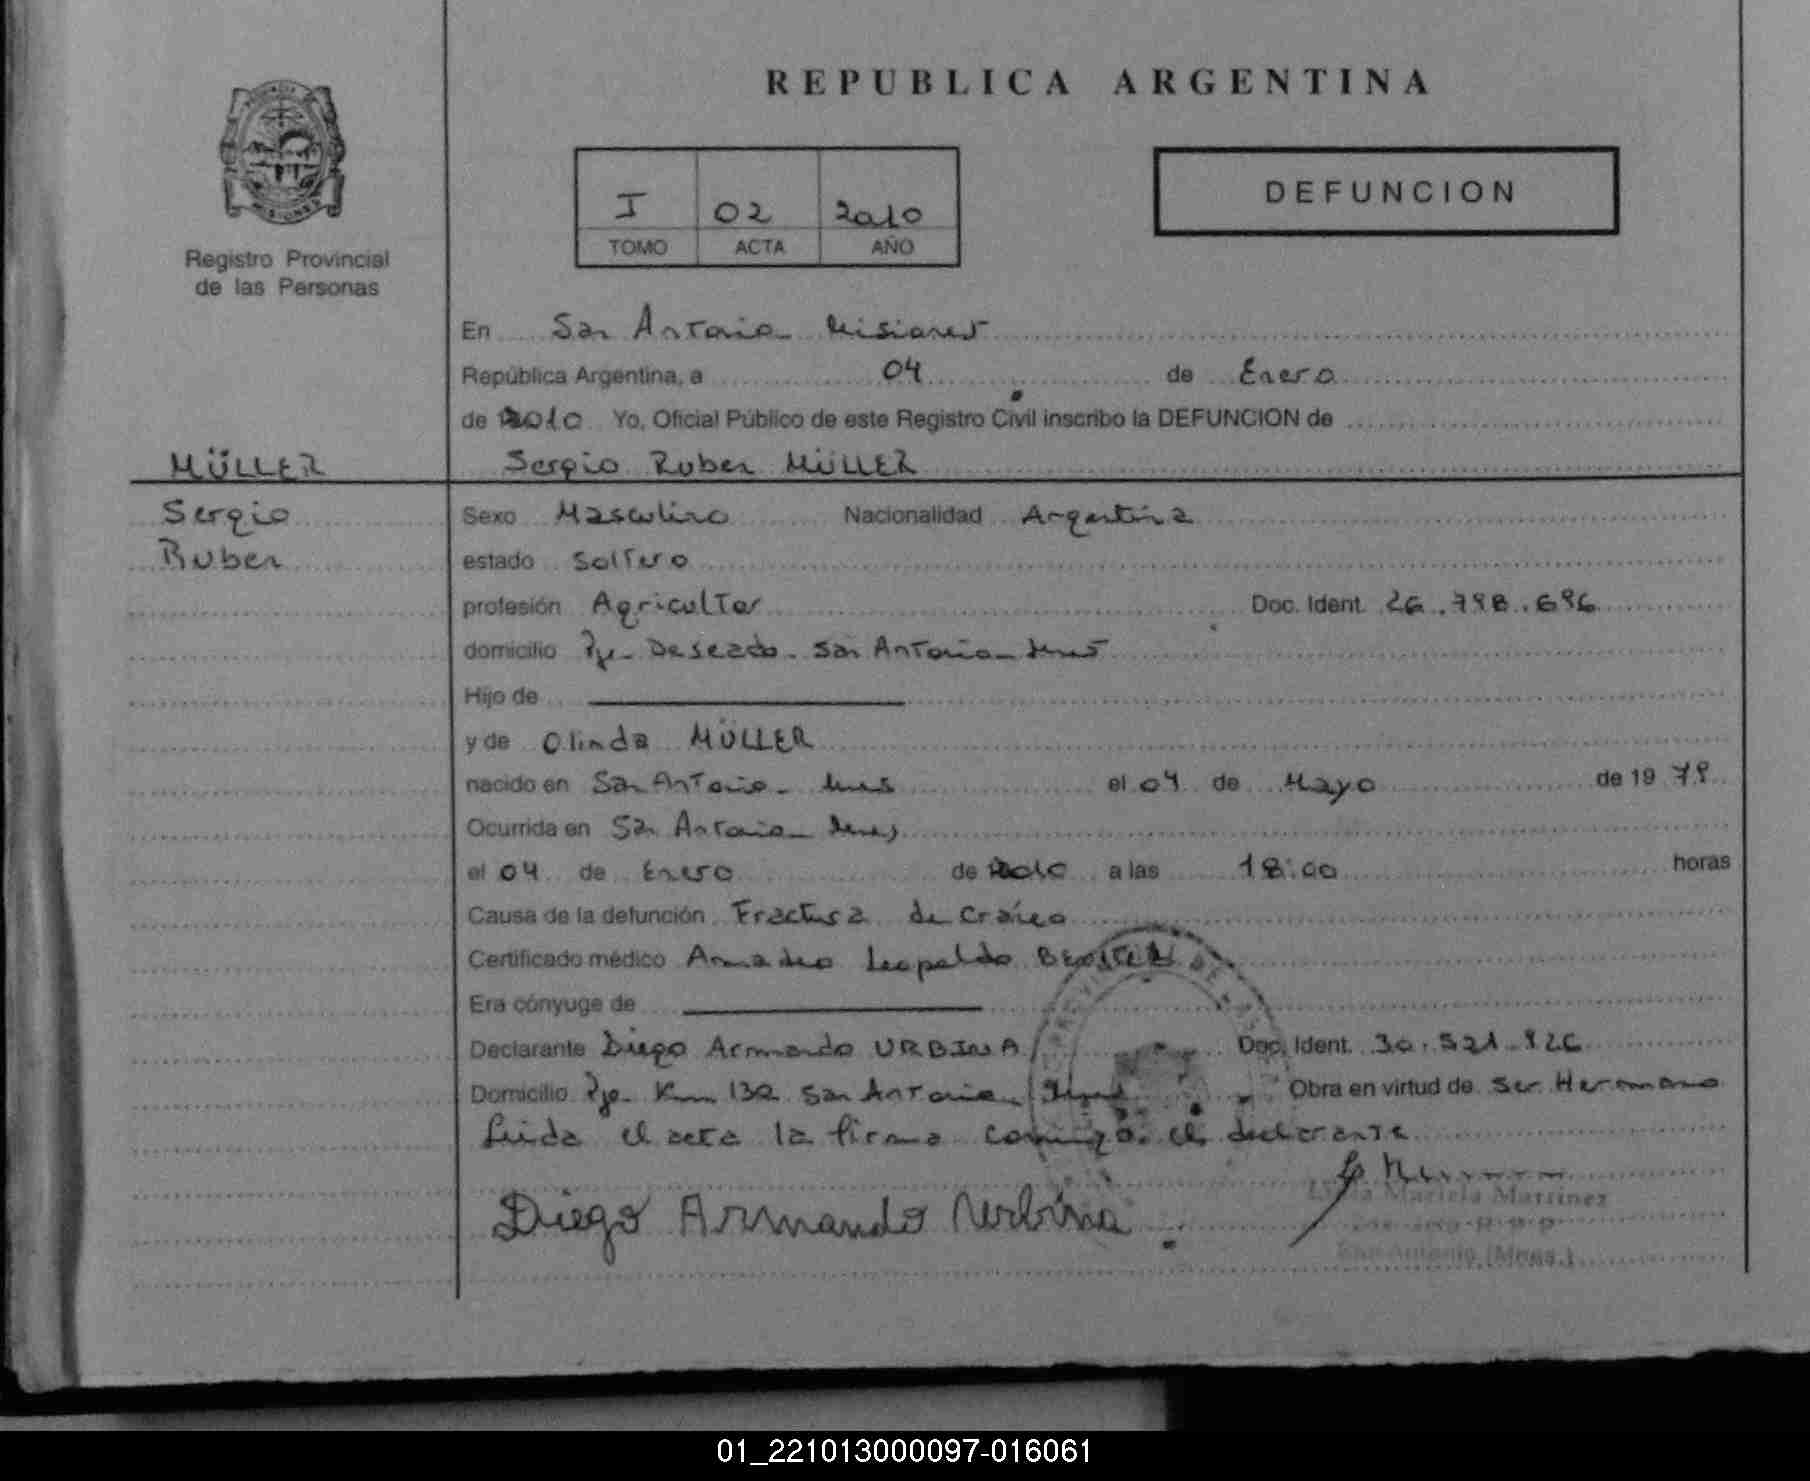 REPUBLICA ARGENTINA
I 02 2010
TOMO ACTA AÑO
DEFUNCION
Registro Provincial
de las Personas
En San Antonio Misiones
República Argentina, a 04 de Enero
de 2010 Yo, Oficial Público de este Registro Civil inscribo la DEFUNCION de
MÜLLER Sergio Ruben MÜLLER
Sergio
Ruben
Sexo Masculino Nacionalidad Argentina
estado Soltero
profesión Agricultor Doc. Ident. 26.798.696
domicilio Pje. Deseado. San Antonio Mnes
Hijo de
y de Olinda MÜLLER
nacido en San Antonio Mnes el 04 de Mayo de 19 79
Ocurrida en San Antonio Mnes
el 04 de Enero de 2010 a las 18:00 horas
Causa de la defunción Fractura de Cráneo
Certificado médico Amadeo Leopoldo
Era cónyuge de
Declarante Diego Armando URBINA Doc. Ident. 30.521.926
Domicilio Pje. Km 132 San Antonio Mnes Obra en virtud de Ser Hermano
Leida el acta la firma conmigo el declarante
Diego Armando Urbina
Mariela Martinez
San Antonio (Mnes.)
01_221013000097-016061